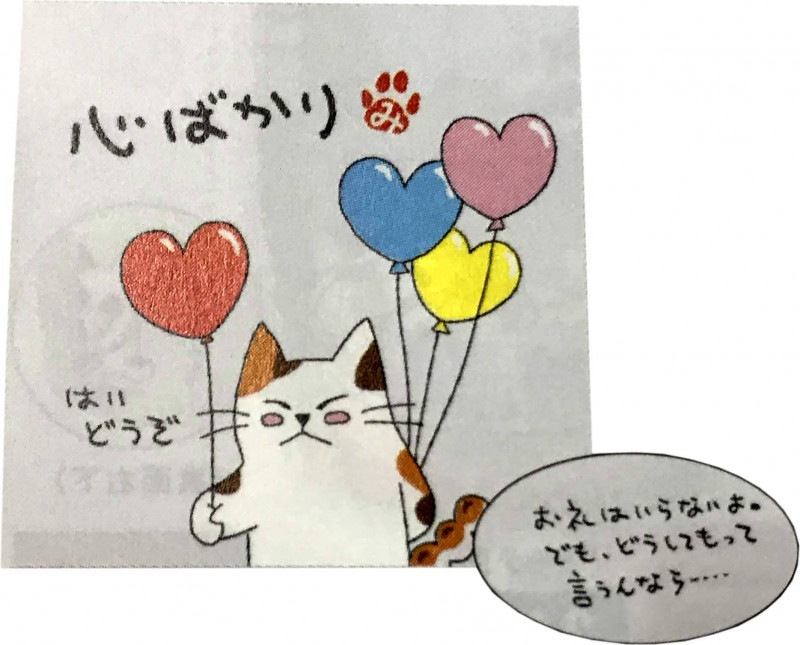 心ばかり
み
はい
どうぞ
お礼はいらないよ。
でも、どうしてもって
言うんなら……